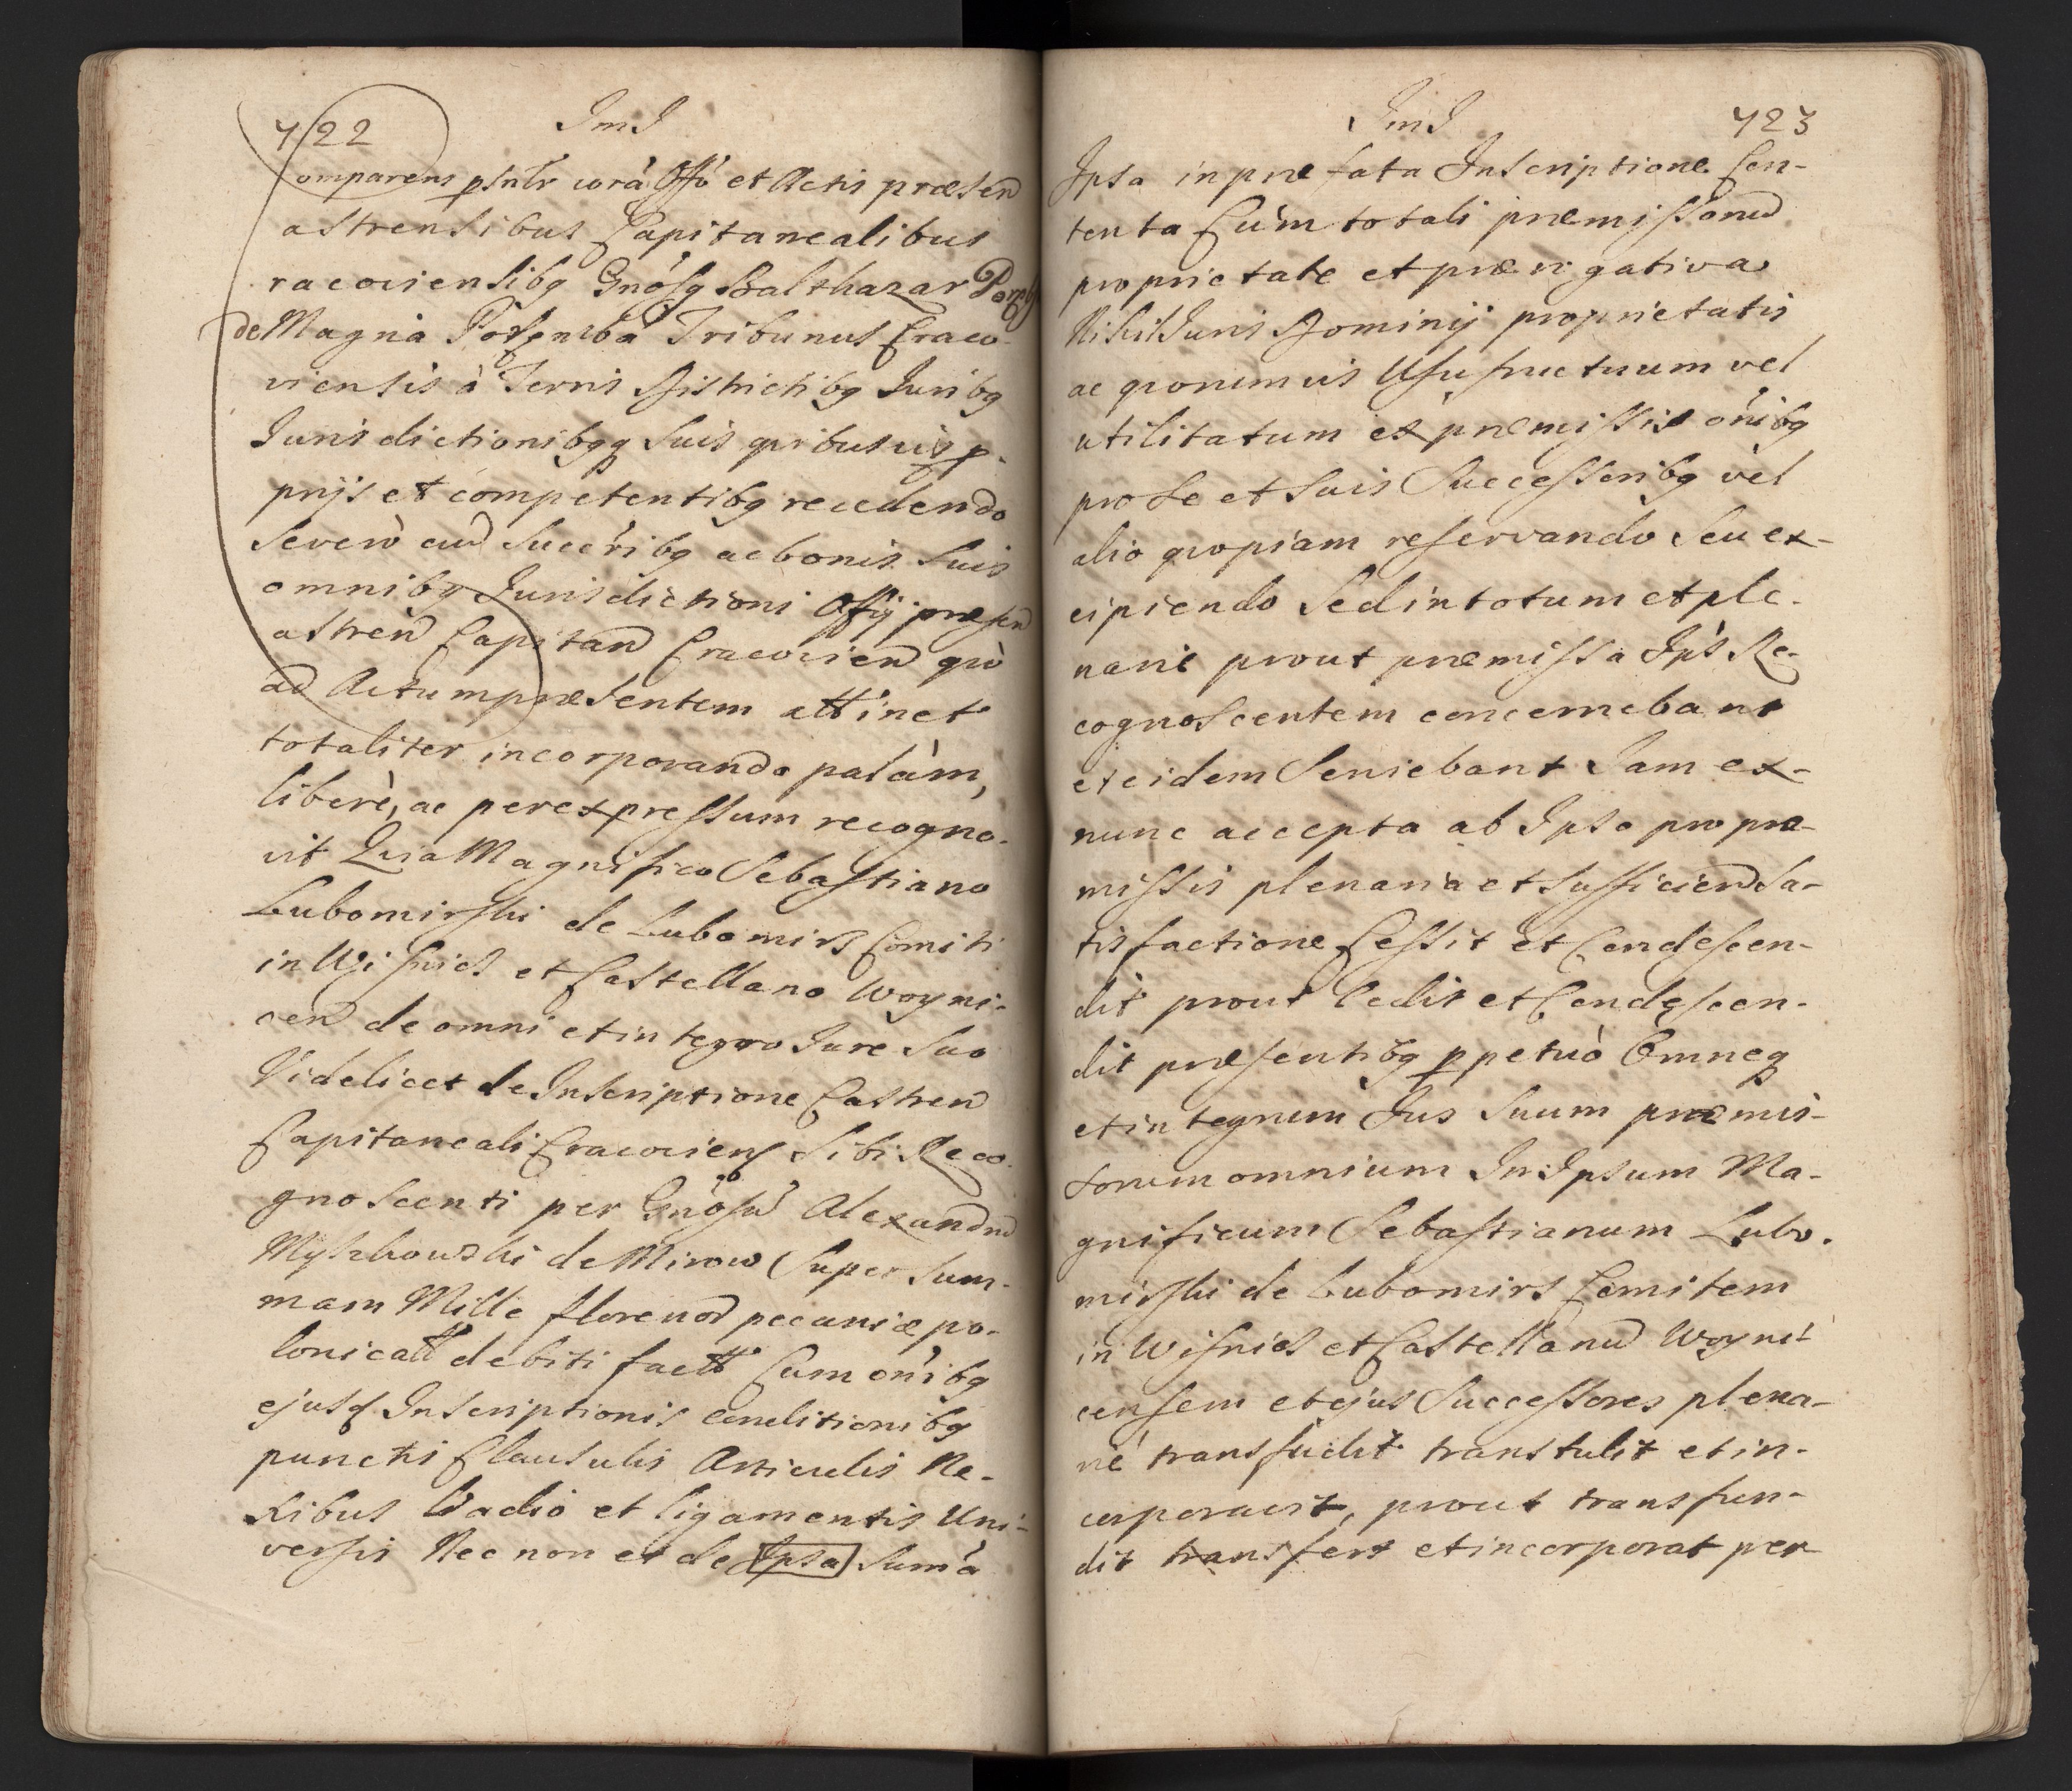 722 JmJ
Comparens psnlr corà Offò et Actis præsen
astrensibus Capitanealibus
racoviensibq Gnosq Balthazar
de Magna Poremba Tribunus Craco-
viensis à Terris Districtibq Juribq
Jurisdictionibqq suis quibusvis p-
prijs et competentibq recedendo
Severò cum Succribq ac bonis Suis
omnibq Jurisdictioni Offij præsen
astren Capitan Cracovien qùo
ad Actum præsentem attinet
totaliter incorporando palàm,
liberè, ac per expressum recogno-
vit Quia Magnifico Sebastiano
Lubomirski de Lubomirz Comiti
in Wisnicz et Castellano Woyni-
cen de omni et integro Jure Suo
Videlicet de Inscriptione Castren
Capitaneali Cracovien Sibi Reco-
gnoscenti per Gnosum Alexandrum
Myszkowski de Mirow Super Sum-
mam Mille florenor pecuniæ po-
lonicall debiti fact Cum onibq
ejusd Inscriptionis conditionibq
punctis Clausulis Articulis Ne-
xibus Vadio et ligamentis Uni-
versis Nec non et de Ipsa Suma
JmJ 723
Ipsa in præfata Inscriptione Con-
tenta Cum totali præmissorum
proprietate et prærogativa
Nihil Juris Dominij proprietatis
ac quorumvis Usufructuum vel
utilitatum ex præmissis onibq
pro Se et Suis Successoribq vel
alio quopiam reservando Seu ex-
cipiendo Sed in totum et ple-
narie prout præmissa Ips Re-
cognoscentem concernebant
et eidem Serviebant Jam ex-
nunc accepta ab Ipso pro præ-
missis plenaria et Sufficien Sa-
tisfactione Cessit et Condescen-
dit prout Cedit et Condescen-
dit præsentibq ppetuò Omneq
et integrum Jus Suum præmis-
sorum omnium In Ipsum Ma-
gnificum Sebastianum Lubo-
mirski de Lubomirz Comitem
in Wisnicz et Castellanum Woyni-
censem et ejus Successores plena-
rie transfudit transtulit et in-
corporavit, prout transfun-
dit transfert et incorporat per